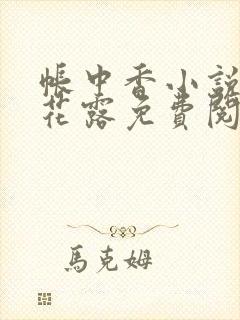 帳中香小說
花露免費閱
馬克姆